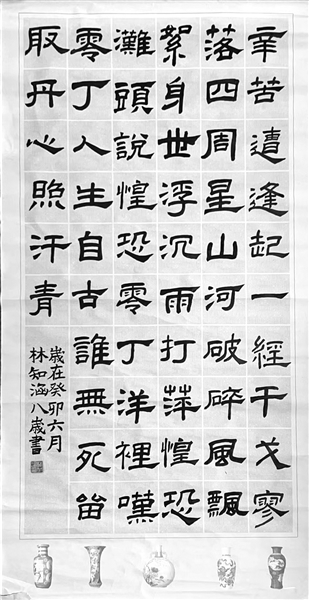 辛苦遭逢起一經干戈寥
落四周星山河破碎風飄
絮身世浮沉雨打萍惶恐
灘頭說惶恐零丁洋裡嘆
零丁人生自古誰無死留
取丹心照汗青
歲在癸卯六月
林知涵八歲書